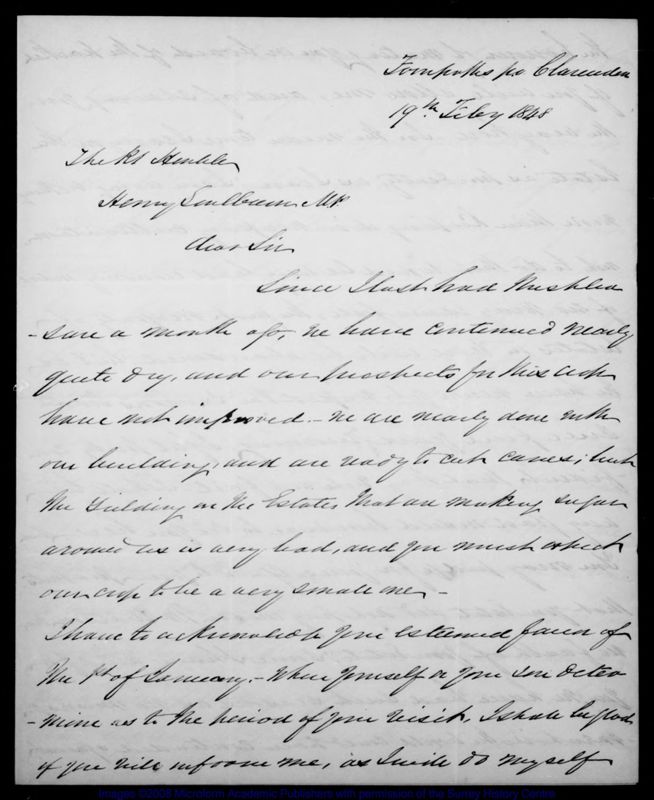 po Clarendon
19th Feby 1848
The Rt Honble
Henry Goulburn MP.
dear Sir
Since I last had this plea
-sure a month ago, we have continued nearly
quite dry, and our prospects for this crop
have not improved. - We are nearly done with
our building, and are ready to cut canes; but
the yielding on the Estates that are making sugar
around us is very bad, and you must expect
our crop to be a very small one -
I have to acknowledge your esteemed favor of
the 1st of January. - When yourself or your son deter
-mine as to the period of your visit, I shall be glad
if you will inform me, as I will do myself
Images ©2008 Microform Academic Publishers with permission of the Surrey History Centre